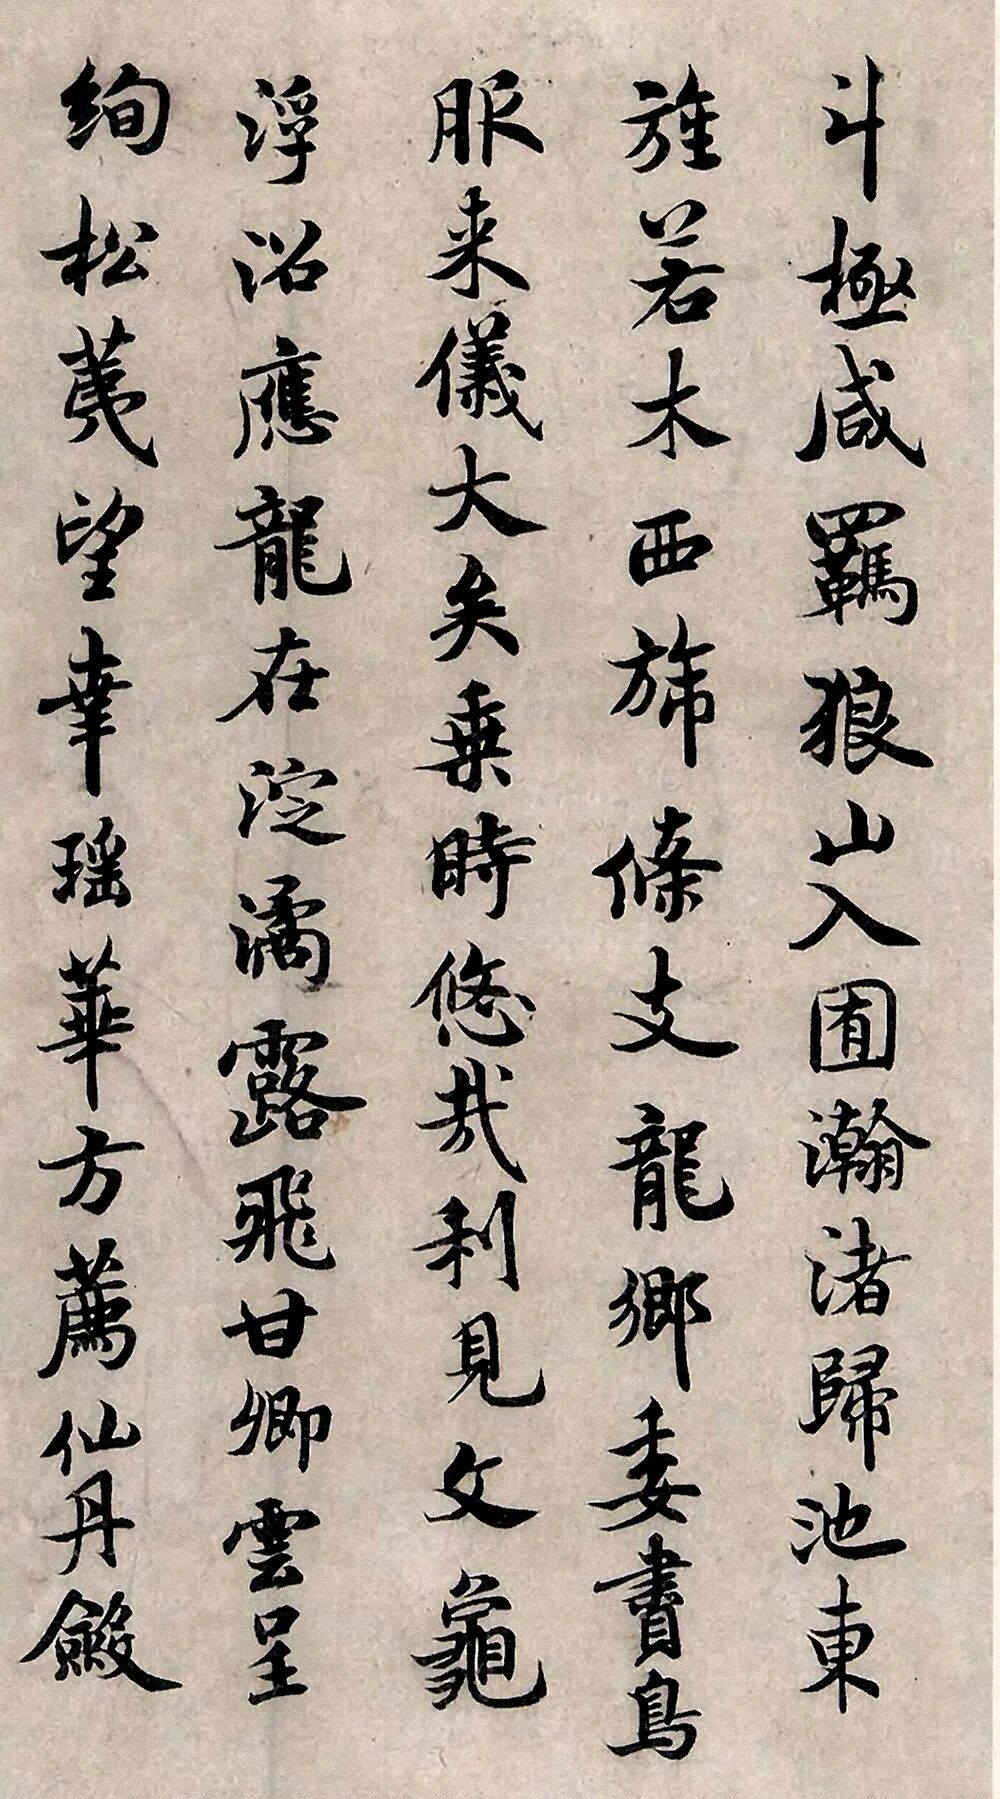 斗極咸羈狼山入囿瀚渚歸池東
旌若木西旆條支龍鄉委書鳥
服来儀大矣乗時悠哉利見文龜
浮沼應龍在淀潏露飛甘卿雲呈
絢松荑望幸瑶華方薦仙丹斂